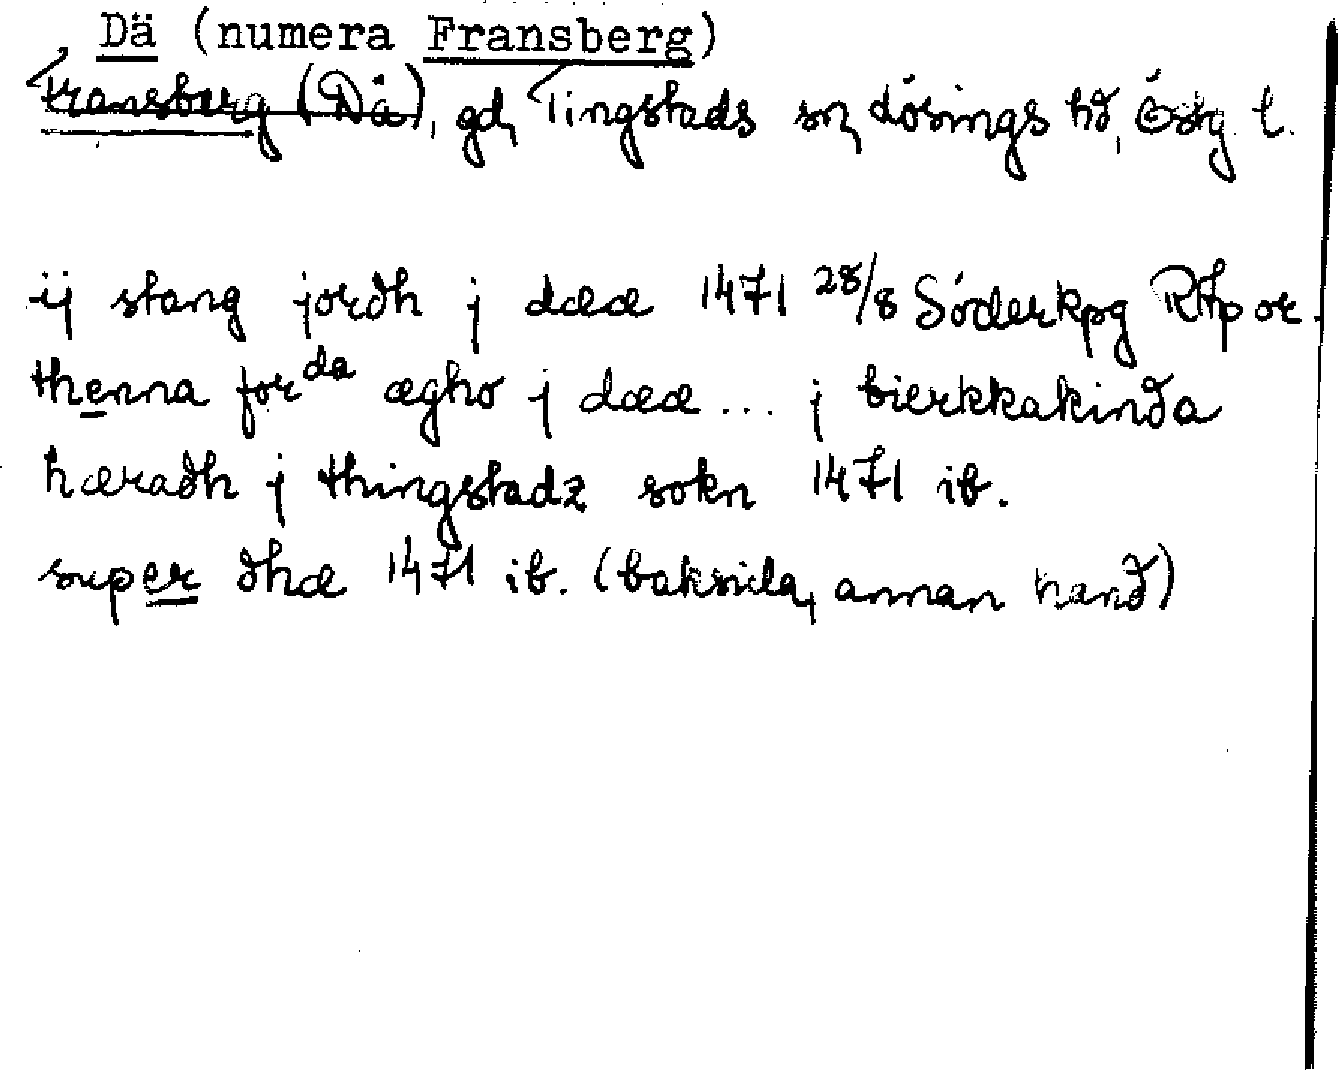 Dä (numera Fransberg)
Fransberg (Dä), gd, Tingstads sn, Lösings hd, Östg. l.
ij stang jordh j dææ 1471 28/8 Söderkpg RAp or.
thenna for da ægho j dææ ... j bierkkakinda
hæradh j thingstadz sokn 1471 ib.
super dhæ 1471 ib. (baksida, annan hand)